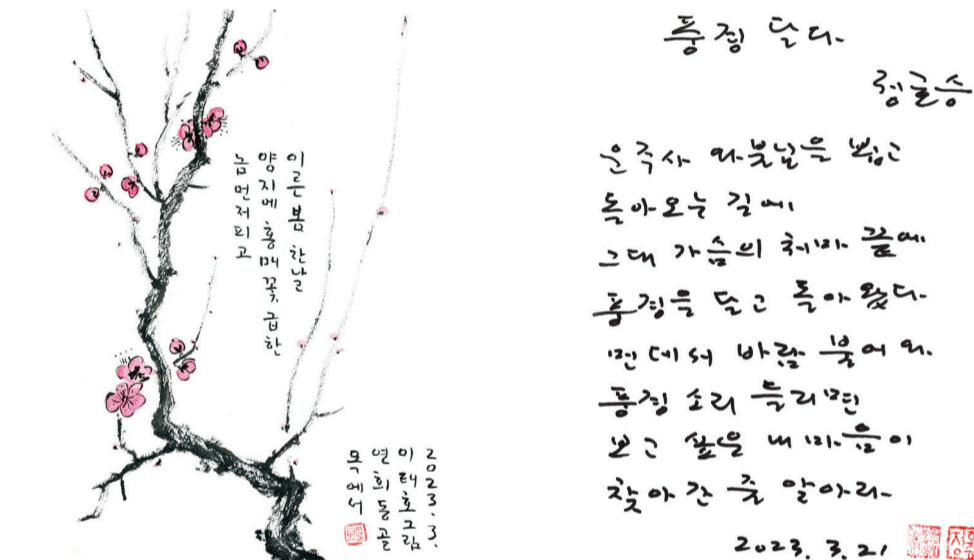 이른 봄 한날
양지에 홍매꽃 급한
놈 먼저 피고
2023.3.
이태호 그림
연희동 골
목에서
풍경 달다.
정호승
운주사 와불님을 뵙고
돌아오는 길에
그대 가슴의 처마 끝에
풍경을 달고 돌아왔다.
먼데서 바람 불어 와.
풍경 소리 들리면
보고 싶은 내 마음이
찾아간 줄 알아라.
2023. 3. 21